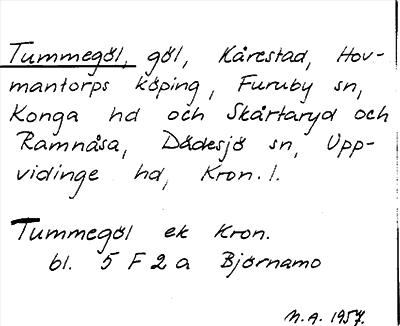 Tummegöl, göl, Kårestad, Hov-
mantorps köping, Furuby sn,
Konga hd och Skårtaryd och
Ramnåsa, Dädesjö sn, Upp-
vidinge hd, Kron. l.
Tummegöl ek Kron.
bl. 5 F 2 a Björnamo
N.A. 1957.